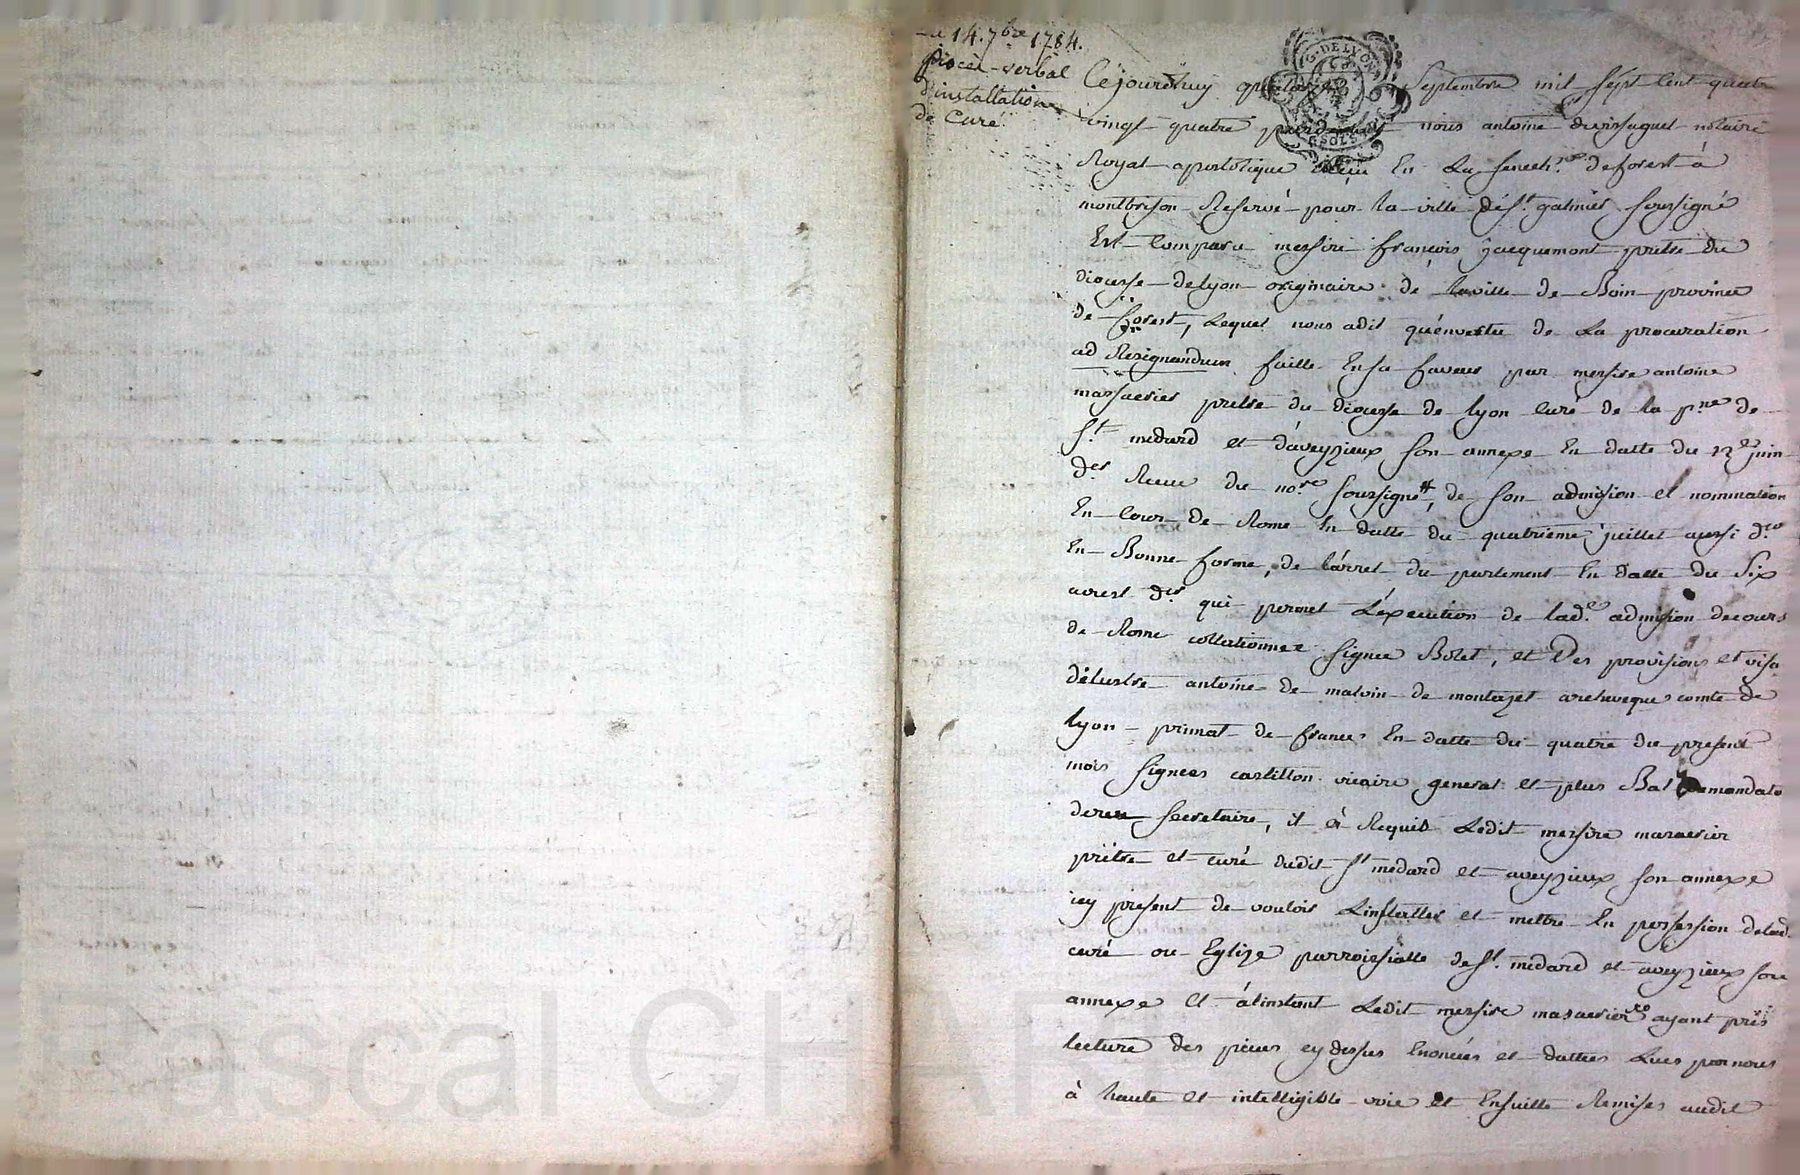 14. 7bre 1784.
procès-verbal
d'installation
de Curé
G. DE LYON
Cejourdhuy quatorze Septembre mil sept cent quatre
vingt quatre pardevant nous antoine dupuy notaire
Royal apostolique Reçu En La senech.ee deforest à
montbrison Reservé pour la ville de St. galmier soussigné
Est Comparu messire françois jacquemont prêtre du
diocesse delyon originaire de la ville de Boin province
de forest, Lequel nous a dit qu'en vertu de La procuration
ad Resignandum faitte En sa faveur par messire antoine
prêtre du diocesse de lyon curé de la p.sse de
St. medard et d'aveyzieux son annexe En datte du 12e juin
der Reçue du no.re soussigné #, de son admission et nomination
En Cour de Rome En datte du quatrieme juillet aussi d.er
En Bonne forme, de l'arret du parlement En datte du Six
aoust der qui permet L'execution de lad.e admission de cour
de Rome collationnee signee Bolet, et Des provisions et visa
antoine de malvin de montazet archeveque comte de
lyon primat de france En datte du quatre du present
mois signees castillon vicaire general et plus Bas demandato
secretaire, il à Requis Ledit messire
prêtre et curé dudit St medard et aveyzieux son annexe
icy present de vouloir L'installer et mettre En possession delad.
cure ou Eglize parroissialle de St. medard et aveyzieux son
annexe Et à l'instant Ledit messire ayant pris
lecture des pieces cy dessus Enoncées et dattées Lues par nous
à haute et intelligible voix et Ensuitte Remises audit
Pascal CHAR